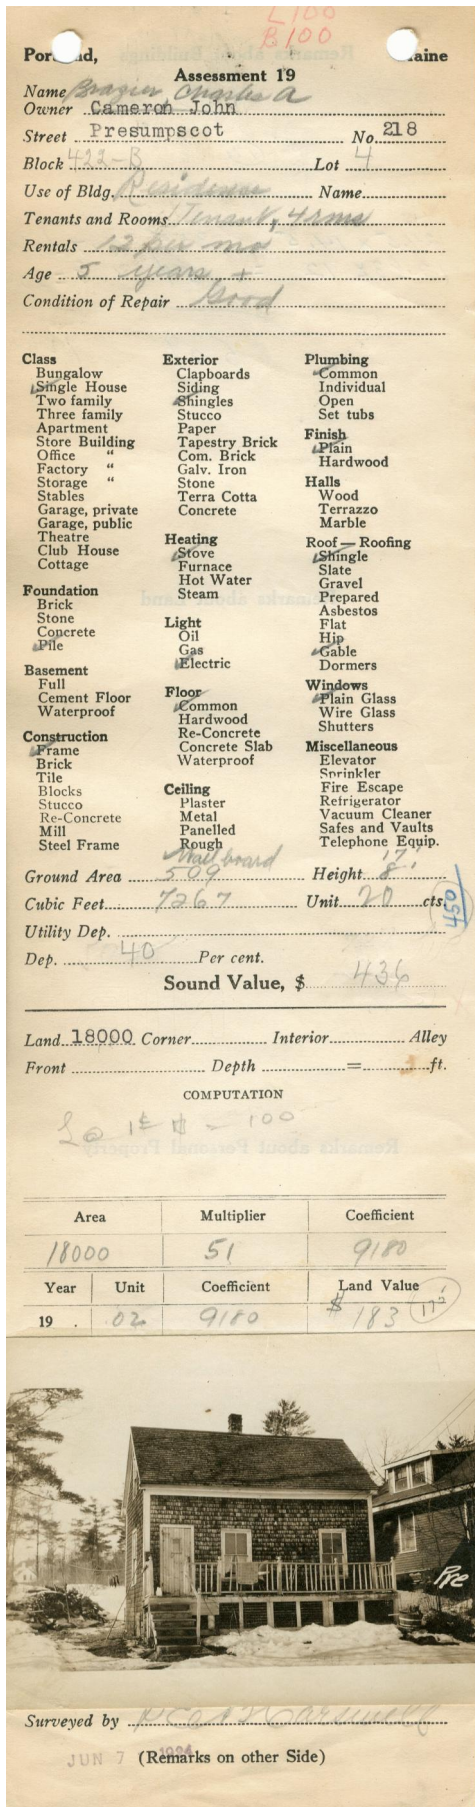 L100
B100
Portland, Maine
Assessment 19
Name Brazier, Charles A
Owner Cameron John
Street Presumpscot No. 218
Block 422-B Lot 4
Use of Bldg. Residence Name
Tenants and Rooms 1 Tenant, 4 rms
Rentals 12 per mo
Age 5 years +
Condition of Repair Good
Class
Bungalow
Single House
Two family
Three family
Apartment
Store Building
Office "
Factory "
Storage "
Stables
Garage, private
Garage, public
Theatre
Club House
Cottage
Foundation
Brick
Stone
Concrete
Pile
Basement
Full
Cement Floor
Waterproof
Construction
Frame
Brick
Tile
Blocks
Stucco
Re-Concrete
Mill
Steel Frame
Exterior
Clapboards
Siding
Shingles
Stucco
Paper
Tapestry Brick
Com. Brick
Galv. Iron
Stone
Terra Cotta
Concrete
Heating
Stove
Furnace
Hot Water
Steam
Light
Oil
Gas
Electric
Floor
Common
Hardwood
Re-Concrete
Concrete Slab
Waterproof
Ceiling
Plaster
Metal
Panelled
Rough
Wall board
Plumbing
Common
Individual
Open
Set tubs
Finish
Plain
Hardwood
Halls
Wood
Terrazzo
Marble
Roof — Roofing
Shingle
Slate
Gravel
Prepared
Asbestos
Flat
Hip
Gable
Dormers
Windows
Plain Glass
Wire Glass
Shutters
Miscellaneous
Elevator
Sprinkler
Fire Escape
Refrigerator
Vacuum Cleaner
Safes and Vaults
Telephone Equip.
17'
Ground Area 509 Height 8'
Cubic Feet 7267 Unit 20 cts.
450
Utility Dep.
Dep. 40 Per cent.
Sound Value, $ 436
Land 18000 Corner Interior Alley
Front Depth = ft.
COMPUTATION
L@ 1¢ = 100
Area Multiplier Coefficient
18000 51 9180
Year Unit Coefficient Land Value
19 . 02 9180 $ 183
Pre
Surveyed by
JUN 7 1924 (Remarks on other Side)